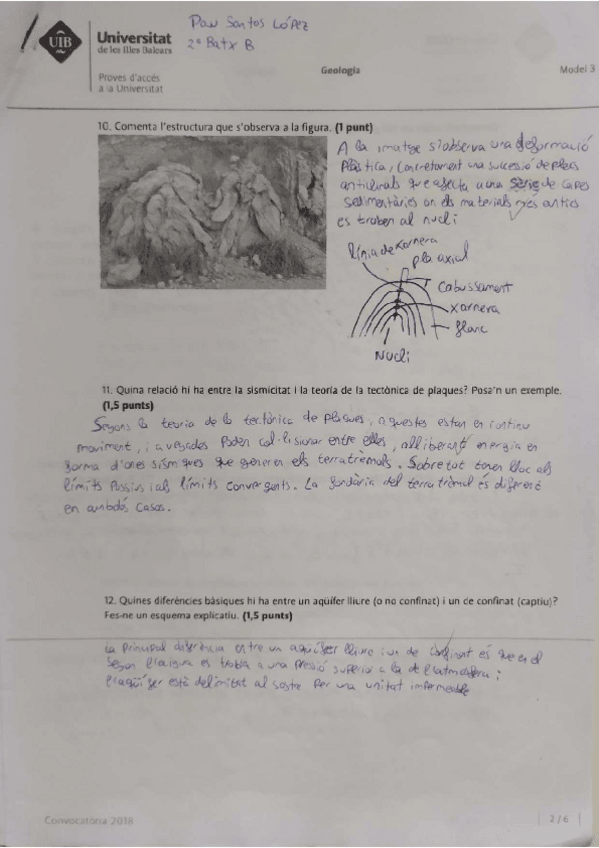 Pau Santos López
2º Batx B
UIB
Universitat
de les Illes Balears
Proves d'accés
a la Universitat
Geologia
Model 3
10. Comenta l'estructura que s'observa a la figura. (1 punt)
A la imatge s'observa una deformació
Plàstica, concretament una successió de plecs
anticlinals que afecta a una serie de capes
sedimentàries on els materials més antics
es troben al nucli
línia de xarnera
pla axial
Cabussament
xarnera
flanc
Nucli
11. Quina relació hi ha entre la sismicitat i la teoria de la tectònica de plaques? Posa'n un exemple.
(1,5 punts)
Segons la teoria de la tectònica de plaques, aquestes estan en continu
moviment, i a vegades poden col·lisionar entre elles, alliberant energia en
forma d'ones sísmiques que generen els terratrèmols. Sobretot tenen lloc als
límits Passius i als límits convergents. La fondària del terratrèmol és diferent
en ambdós casos.
12. Quines diferències bàsiques hi ha entre un aqüífer lliure (o no confinat) i un de confinat (captiu)?
Fes-ne un esquema explicatiu. (1,5 punts)
La principal diferència entre un aqüífer lliure i un de confinat és que en el
segon l'aigua es troba a una pressió superior a la de l'atmosfera i
l'aqüífer està delimitat al sostre per una unitat impermeable
Convocatòria 2018
2 / 6